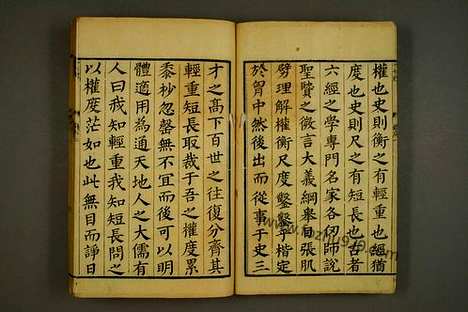 權也史則衡之有輕重也經猶
度也史則尺之有短長也古者
六經之學專門名家各仞師說
聖贒之微言大義綱舉目張肌
劈理解權衡尺度鑿鑿乎楷定
於胷中然後出而從事于史三
才之高下百世之往復分齊其
輕重短長取裁于吾之權度累
黍杪忽罄無不宜而後可以明
體適用為通天地人之大儒有
人曰我知輕重我知短長問之
以權度茫如也此無目而諍日